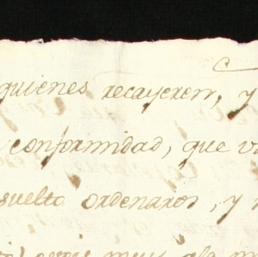 quienes recayeren, y
conformidad, que v
suelto ordenaros, y